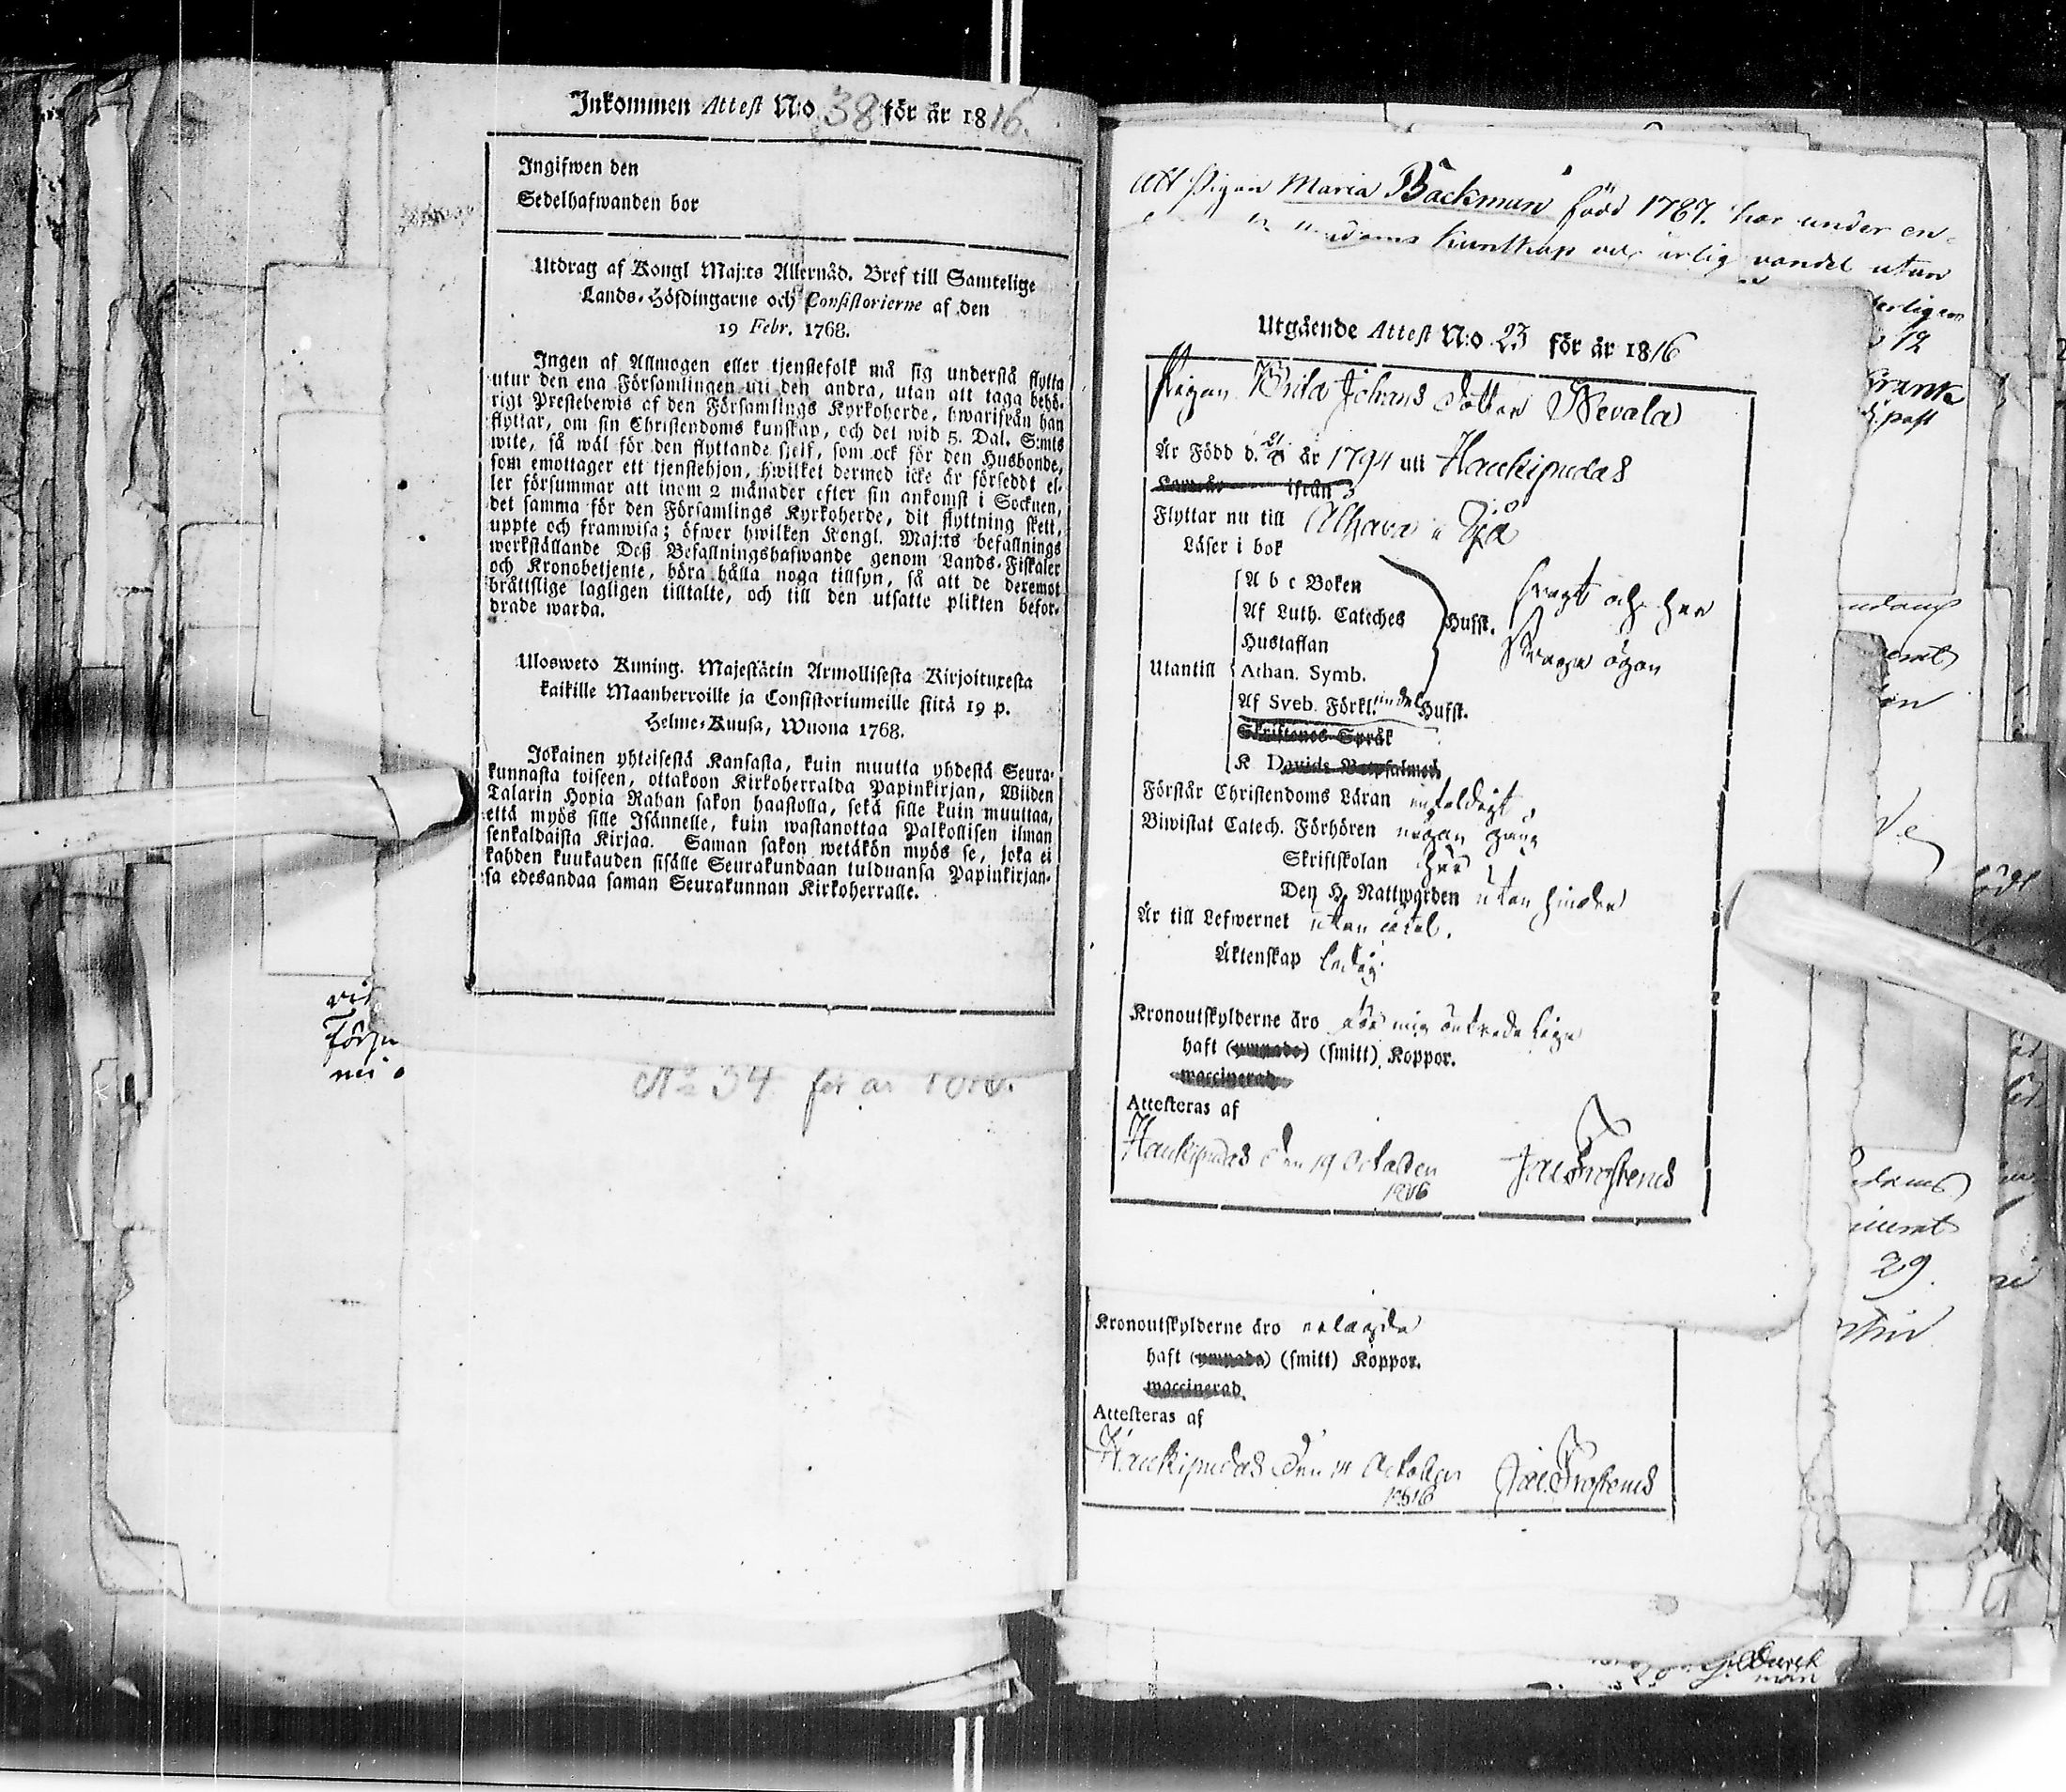 Inkommen Attest N:o 38 för år 1816.
Ingifwen den
Sedelhafwanden bor
Utdrag af Kongl Maj:ts Allernåd. Bref till Samtelige
Lands-Höfdingarne och Consistorierne af den
19 Febr. 1768.
Ingen af Allmogen eller tjenstefolk må sig understå flytta
utur den ena Församlingen uti den andra, utan att taga behö-
rigt Prestebewis af den Församlings Kyrkoherde, hwarifrån han
flyttar, om sin Christendoms kunskap, och det wid 5. Dal. S:mts
wite, så wäl för den flyttande sjelf, som ock för den Husbonde,
som emottager ett tjenstehjon, hwilket dermed icke är förseddt el-
ler försummar att inom 2 månader efter sin ankomst i Socknen,
det samma för den Församlings Kyrkoherde, dit flyttning skett,
uppte och framwisa; öfwer hwilken Kongl. Maj:ts befallnings
werkställande Deß Befallningshafwande genom Lands-Fiskaler
och Kronobetjente, böra hålla noga tillsyn, så att de deremot
bråttslige lagligen tilltalte, och till den utsatte plikten befor-
drade warda.
Ulosweto Kuning. Majestätin Armollisesta Kirjoituxesta
kaikille Maanherroille ja Consistoriumeille siitä 19 p.
Helme-Kuusa, Wuona 1768.
Jokainen yhteisestä Kansasta, kuin muutta yhdestä Seura-
kunnasta toiseen, ottakoon Kirkoherralda Papinkirjan, Wiiden
Talarin Hopia Rahan sakon haastolla, sekä sille kuin muuttaa,
että myös sille Isännelle, kuin wastanottaa Palkollisen ilman
senkaldaista Kirjaa. Saman sakon wetäkön myös se, joka ei
kahden kuukauden sisälle Seurakundaan tulduansa Papinkirjan-
sa edesandaa saman Seurakunnan Kirkoherralle.
No 34 för år
Att Pigan Maria Backman född 1787. har under en-
kunskap och ärlig vandel utan
Utgående Attest N:o 23 för år 1816
Pigan Brita Johans Dotter Nevala
Är Född d. 21 år 1794 uti Haukipudas
ifrån
Flyttar nu till Alhava i Ijå
Läser i bok
A b c Boken
Af Luth. Cateches
Hufst.
Hustaflan
svagt och har
svaga ögon
Utantill
Athan. Symb.
Af Sveb. Förkl. Hufst.
Skriftenes Språk
K Davids Botpsalmer
Förstår Christendoms Läran enfaldigt
Biwistat Catech. Förhören någon gång
Skriftskolan här
Den H. Nattwarden utan hinder
Är till Lefwernet utan åtal.
Äktenskap ledig
Kronoutskylderne äro för mig
haft (ympade) (smitt) Koppor.
waccinerad
Attesteras af
Haukipudas den 19 October
1816
Jac. Frosterus
Kronoutskylderne äro erlagde
haft (ympade) (smitt) Koppor.
waccinerad.
Attesteras af
Haukipudas den October
1816
Jac. Frosterus
29